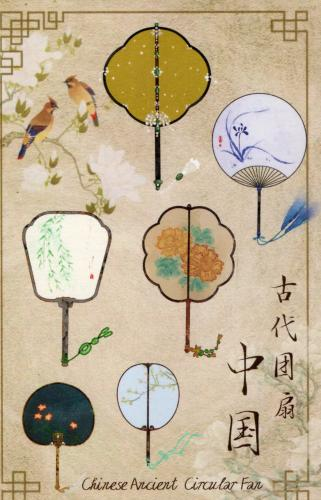 古代团扇
中国
Chinese Ancient Circular Fan